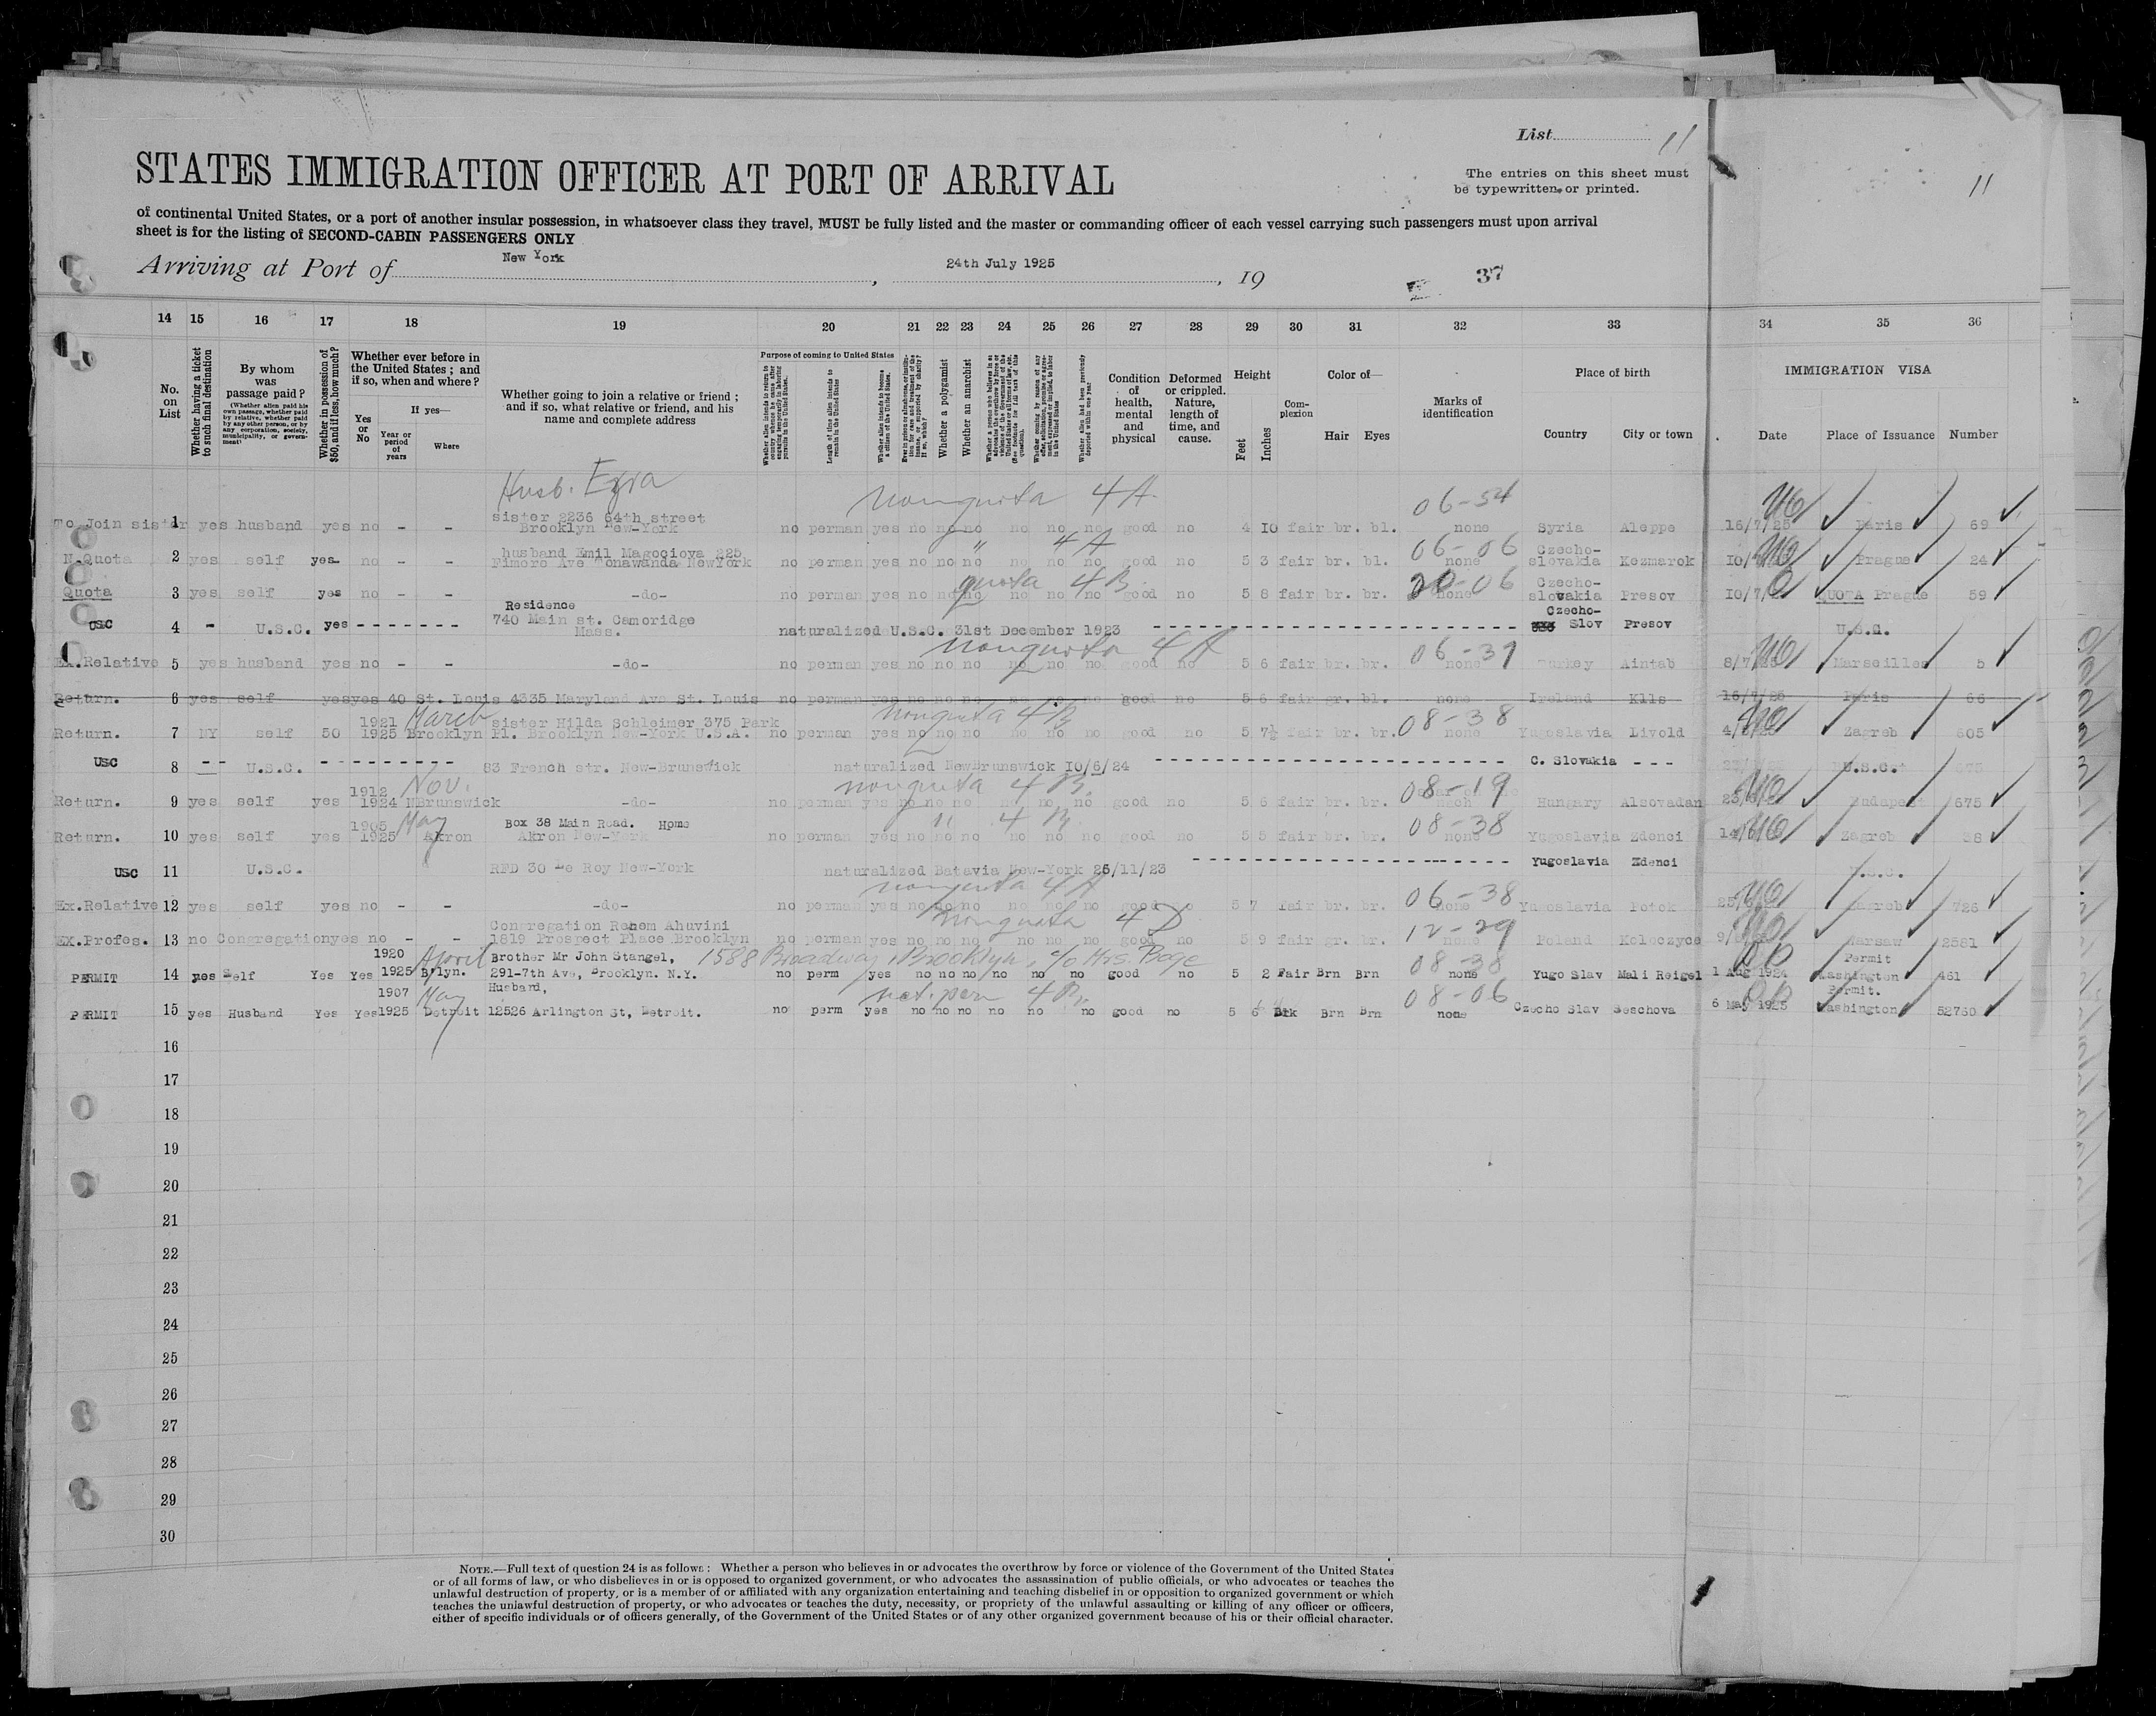 List 11
STATES IMMIGRATION OFFICER AT PORT OF ARRIVAL
The entries on this sheet must
be typewritten or printed.
11
of continental United States, or a port of another insular possession, in whatsoever class they travel, MUST be fully listed and the master or commanding officer of each vessel carrying such passengers must upon arrival
sheet is for the listing of SECOND-CABIN PASSENGERS ONLY
Arriving at Port of New York, 24th July 1925, 19
37
14 15 16 17 18 19 20 21 22 23 24 25 26 27 28 29 30 31 32 33 34 35 36
No. on List
Whether having a ticket to such final destination
By whom was passage paid?
(Whether alien paid his own passage, whether paid by relative, whether paid by any other person, or by any corporation, society, municipality, or government)
Whether in possession of $50, and if less, how much?
Whether ever before in the United States; and if so, when and where?
Yes or No
If yes—
Year or period of years
Where
Whether going to join a relative or friend; and if so, what relative or friend, and his name and complete address
Purpose of coming to United States
Whether alien intends to return to country whence he came after engaging temporarily in laboring pursuits in the United States.
Length of time alien intends to remain in the United States
Whether alien intends to become a citizen of the United States.
Whether a polygamist
Whether an anarchist
Condition of health, mental and physical
Deformed or crippled. Nature, length of time, and cause.
Height
Feet
Inches
Color of—
Complexion
Hair Eyes
Marks of identification
Place of birth
Country City or town
IMMIGRATION VISA
Date Place of Issuance Number
Husb. Ezra nonquota 4 A. 06-54
sister 2236 64th street
To Join sister 1 yes husband yes no - - Brooklyn New-York no perman yes no no no no no no good no 4 10 fair br. bl. none Syria Aleppe 16/7/25 Paris 69
husband Emil Magociova 225 " 4 A 06-06 Czecho-
N.Quota 2 yes self yes no - - no perman yes no no no no no no good no 5 3 fair br. bl. none slovakia Kezmarok Prague 24
quota 4 B. 20-06 Czecho-
Quota 3 yes self yes no - - -do- no perman yes no no no no no no good no 5 8 fair br. br. none slovakia Presov QUOTA Prague 59
Residence Czecho-
USC 4 - U.S.C. yes 740 Main st. Camoridge Mass. naturalized U.S.C. 31st December 1923 Slov Presov U.S.C.
nonquota 4 A 06-37
Ex.Relative 5 yes husband yes no - - -do- no perman yes no no no no no no good no 5 6 fair br. br. none Turkey Aintab Marseilles 5
Return. 6 yes self yes yes 40 St. Louis 4335 Maryland Ave St. Louis no perman yes no no no no no no good no 5 6 fair gr. bl. none Ireland Klls 16/7/25 Paris 66
1921 March sister Hilda Schleimer 375 Park nonquota 4 B 08-38
Return. 7 NY self 50 1925 Brooklyn Pl. Brooklyn New-York U.S.A. no perman yes no no no no no no good no 5 7½ fair br. br. none Yugoslavia Livold Zagreb 605
USC 8 U.S.C. 83 French str. New-Brunswick naturalized NewBrunswick 10/6/24 C. Slovakia U.S.C.
1912 Nov. nonquota 4 B. 08-19
Return. 9 yes self yes 1924 NBrunswick -do- no perman yes no no no no no no good no 5 6 fair br. br. Hungary Alsovadan Budapest 675
1905 May Box 38 Main Road. Home " 4 B. 08-38
Return. 10 yes self yes 1925 Akron Akron New-York no perman yes no no no no no no good no 5 5 fair br. br. none Yugoslavia Zdenci Zagreb 38
USC 11 U.S.C. RFD 30 Le Roy New-York naturalized Batavia New-York 26/11/23 Yugoslavia Zdenci
nonquota 4 A 06-38
Ex.Relative 12 yes self yes no - - -do- no perman yes no no no no no no good no 5 7 fair br. br. none Yugoslavia Potok Zagreb 726
Congregation Rehem Ahuvini nonquota 4 D 12-29
EX.Profes. 13 no Congregation yes no - - 1819 Prospect Place Brooklyn no perman yes no no no no no no good no 5 9 fair gr. br. none Poland Koloczyce Warsaw 2581
1920 April Brother Mr John Stangel, 1588 Broadway, Brooklyn, c/o Mrs. Boge 08-38 Permit
PERMIT 14 yes Self Yes Yes 1925 B'lyn. 291-7th Ave, Brooklyn. N.Y. no perm yes no no no no no no good no 5 2 Fair Brn Brn none Yugo Slav Mali Reigel 1 Aug 1924 Washington 461
1907 May Husband, ret. per 4 B 08-06 Permit.
PERMIT 15 yes Husband Yes Yes 1925 Detroit 12526 Arlington St, Detroit. no perm yes no no no no no no good no 5 6 Brk Brn Brn none Czecho Slav Seschova 6 May 1925 Washington 52760
16
17
18
19
20
21
22
23
24
25
26
27
28
29
30
NOTE.—Full text of question 24 is as follows: Whether a person who believes in or advocates the overthrow by force or violence of the Government of the United States
or of all forms of law, or who disbelieves in or is opposed to organized government, or who advocates the assassination of public officials, or who advocates or teaches the
unlawful destruction of property, or is a member of or affiliated with any organization entertaining and teaching disbelief in or opposition to organized government or which
teaches the unlawful destruction of property, or who advocates or teaches the duty, necessity, or propriety of the unlawful assaulting or killing of any officer or officers,
either of specific individuals or of officers generally, of the Government of the United States or of any other organized government because of his or their official character.